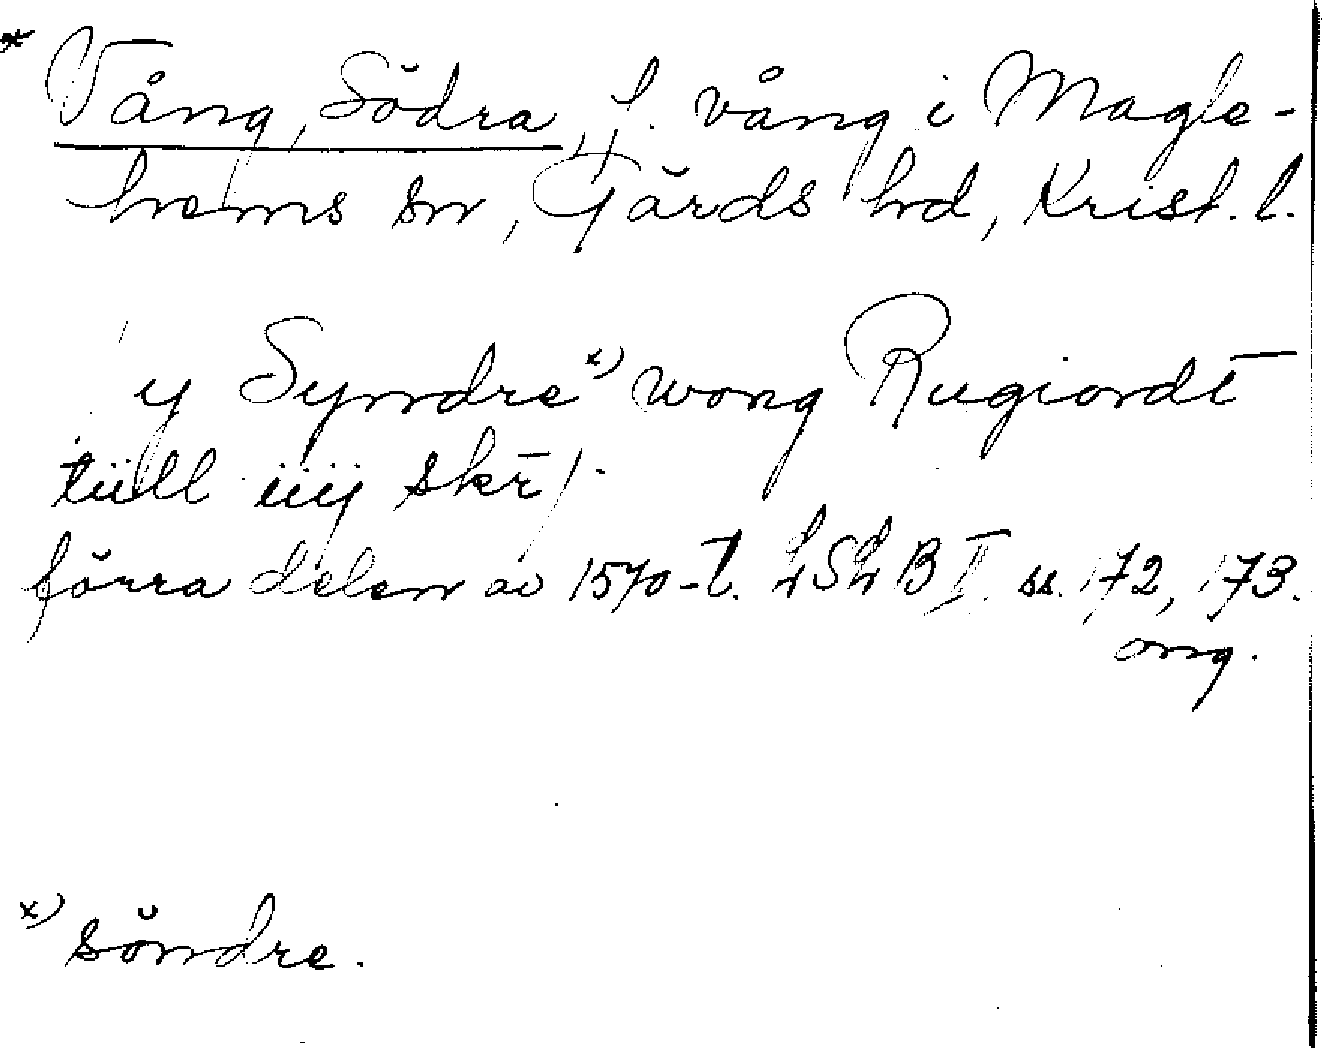 * Vång, Södra, f. vång i Magle-
hems sn, Gärds hd, Krist. l.
y Syndre x) wong Rugiordt
tiill iiij skr̄/.
förra delen av 1570-t. LSLB I. ss. 172, 173.
org.
x) söndre.